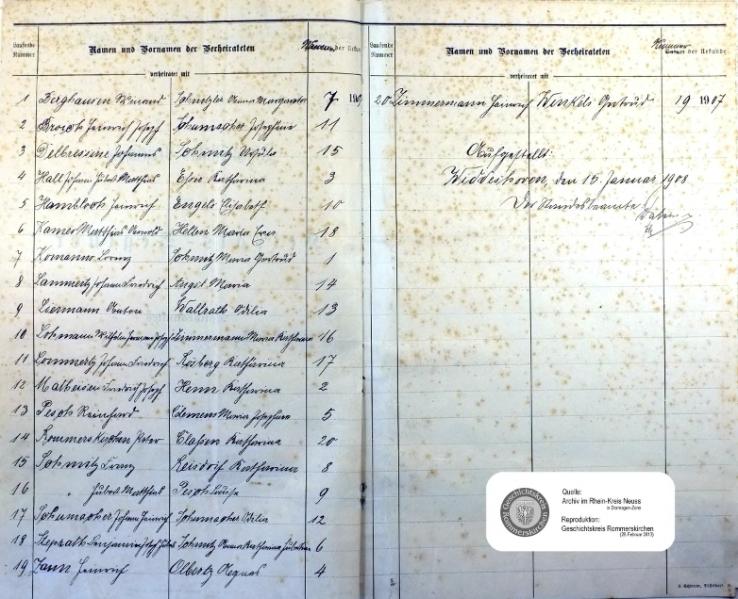 Laufende Nummer Namen und Vornamen der Verheirateten Nummer der Urkunde
verheiratet mit
1 Berghausen Wienand Schmitzler Anna Margaretha 7 190
2 Broich Heinrich Joseph Schumacher Josephine 11
3 Delbressine Johannes Schmitz Ursula 15
4 Hall Johann Hubert Matthias Esser Katharina 3
5 Hambloch Heinrich Engels Elisabeth 10
6 Kamer Matthias Arnold Hellen Maria Eva 18
7 Komanns Lorenz Schmitz Maria Gertrud 1
8 Lammertz Johann Friedrich Angst Maria 14
9 Liermann Anton Wallrath Odilia 13
10 Lohmann Wilhelm Joseph Zimmermann Maria Katharina 16
11 Lommertz Johann Friedrich Rosberg Katharina 17
12 Matheisen Friedrich Joseph Henn Katharina 2
13 Pesch Reinhard Clemens Maria Josephine 5
14 Rommerskirchen Peter Claßen Katharina 20
15 Schmitz Franz Reisdorf Katharina 8
16 " Hubert Matthias Pesch Louise 9
17 Schumacher Johann Heinrich Schumacher Odilia 12
18 Steprath Schmitz Anna Katharina 6
19 Zann Heinrich Olbertz Agnes 4
Laufende Nummer Namen und Vornamen der Verheirateten Nummer der Urkunde
verheiratet mit
20 Zimmermann Heinrich Winkels Gertrud 19 1907
Aufgestellt:
Widdeshoven, den 15. Januar 1908
Der Standesbeamte
Geschichtskreis Rommerskirchen
Quelle:
Archiv im Rhein-Kreis Neuss
in Dormagen-Zons
Reproduktion:
Geschichtskreis Rommerskirchen
(28.Februar 2013)